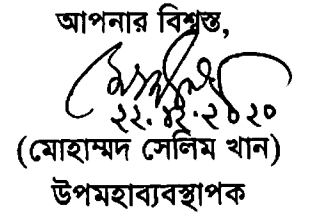 আপনার বিশ্বস্ত,
২২.১২.২০২০
(মোহাম্মদ সেলিম খান)
উপমহাব্যবস্থাপক